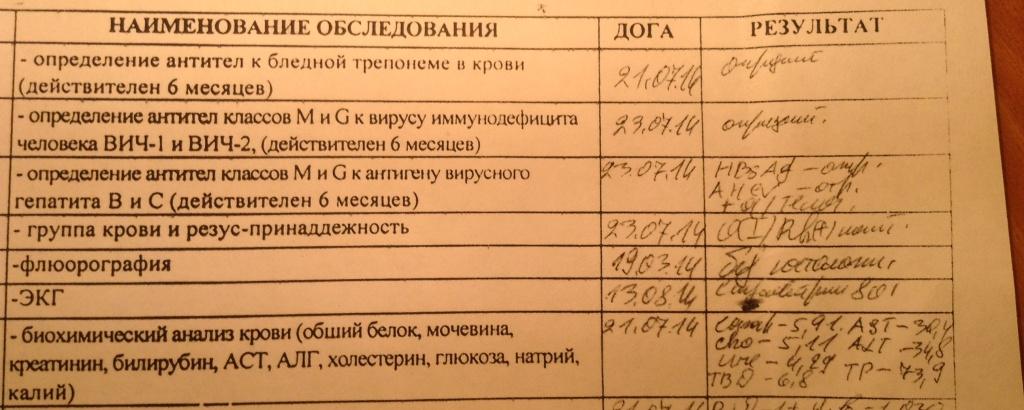 НАИМЕНОВАНИЕ ОБСЛЕДОВАНИЯ ДОГА РЕЗУЛЬТАТ
- определение антител к бледной трепонеме в крови
(действителен 6 месяцев) 21.07.14
- определение антител классов М и G к вирусу иммунодефицита
человека ВИЧ-1 и ВИЧ-2, (действителен 6 месяцев) 23.07.14
- определение антител классов М и G к антигену вирусного
гепатита В и С (действителен 6 месяцев) 23.07.14 HBsAg - отр.
- группа крови и резус-принаддежность 23.07.14
-флюорография 19.03.14
-ЭКГ 13.08.14
- биохимический анализ крови (обший белок, мочевина, 21.07.14 5,91. AST - 30,4
креатинин, билирубин, АСТ, АЛГ, холестерин, глюкоза, натрий, cho - 5,11 ALT - 34,8
калий) ure - 4,29 TP - 73,9
- 6,8